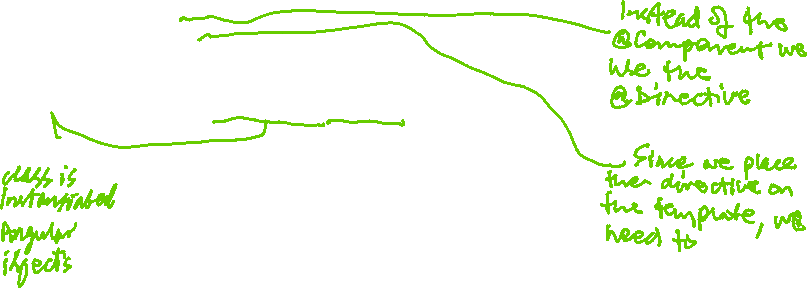 Instead of the
@Component we
use the
@Directive
Since we place
the directive on
the template, we
need to
class is
instantiated
Angular
injects